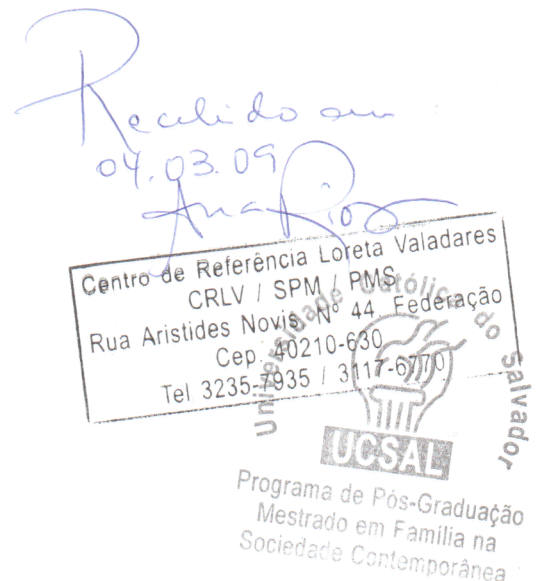 Recebido em
04.03.09
Ana Rios
Centro de Referência Loreta Valadares
CRLV / SPM / PMS
Rua Aristides Novis, Nº 44 Federação
Cep. 40210-630
Tel 3235-7935 / 3117-6770
Universidade Católica do Salvador
UCSAL
Programa de Pós-Graduação
Mestrado em Família na
Sociedade Contemporânea